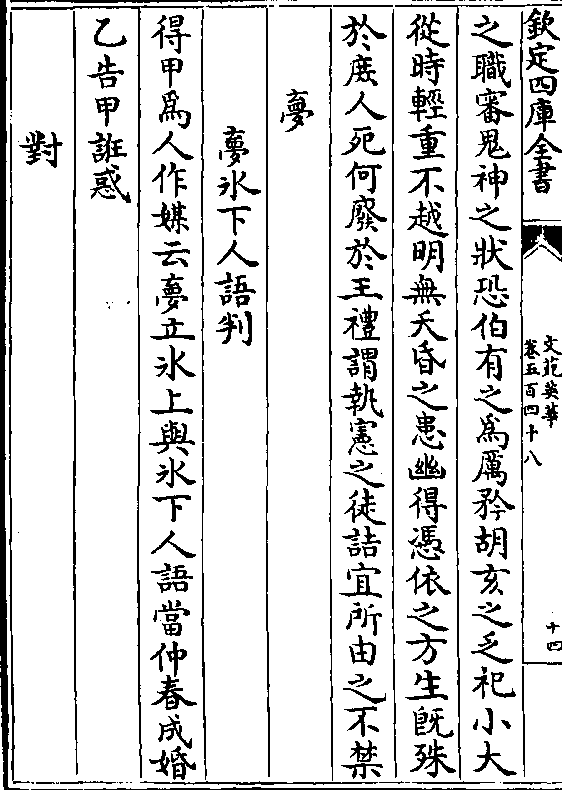 欽定四庫全書
文苑英華
卷五百四十八
十四
之職審鬼神之狀恐伯有之為厲矜胡亥之乏祀小大
從時輕重不越明無夭昏之患幽得憑依之方生旣殊
於庶人死何廢於王禮謂執憲之徒詰宜所由之不禁
夢
夢氷下人語判
得甲為人作媒云夢立氷上與氷下人語當仲春成婚
乙告甲誑惑
對